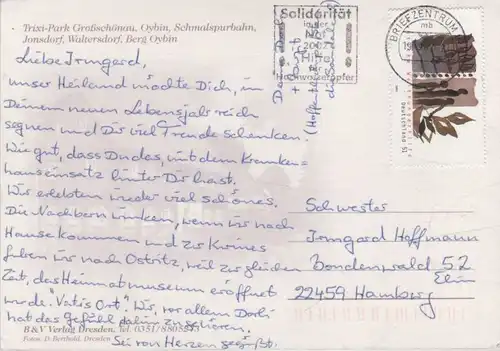 Trixi-Park Großschönau, Oybin, Schmalspurbahn,
Jonsdorf, Waltersdorf, Berg Oybin
Liebe Irmgard,
unser Heiland möchte Dich, in
Deinem neuen Lebensjahr reich
segnen und Dir viel Freude schenken.
Wie gut, dass Du das, mit dem Kranken=
hauseinsatz hinter Dir hast.
Wir erlebten wieder viel schönes.
Die Nachbarn winken, wenn wir nach
Hause kommen und zur Kurines
fuhren wir nach Ostritz, weil zur gleichen
Zeit, das Heimatmuseum eröffnet
wurde. "Vatis Ort". Wir, vor allem Dorli
hat das Gefühl dahin zu gehören.
Sei von Herzen gegrüßt.
B&V Verlag Dresden, Tel. 0351/
Fotos: D. Berthold, Dresden
Solidarität
in der
2002
Hilfe
der
Hochwasseropfer
BRIEFZENTRUM
mb
Deutschland 51
Schwester
Irmgard Hoffmann
Bondenwald 52
22459 Hamburg